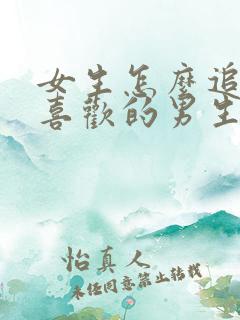 女生怎麼追
喜歡的男生
怡真人
未任同意禁止转载